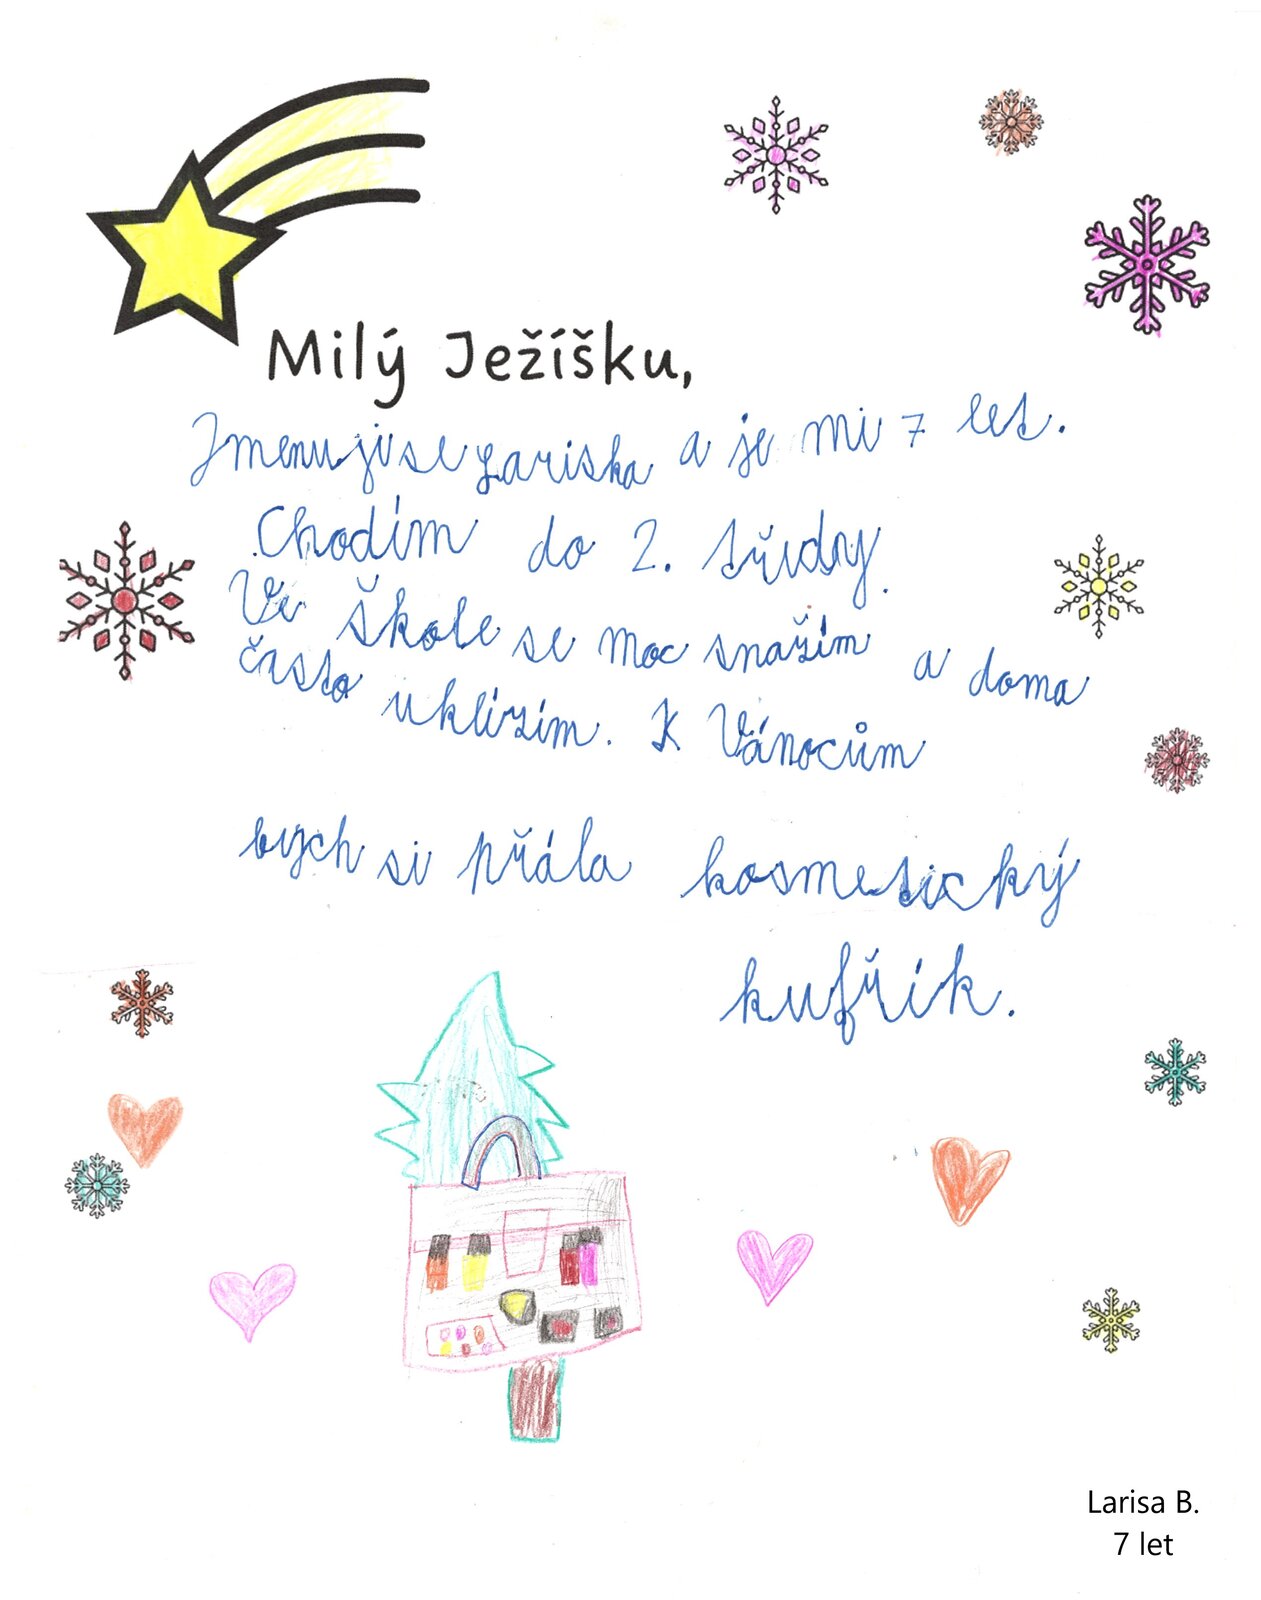 Milý Ježíšku,
Jmenuji se Lariska a je mi 7 let.
Chodím do 2. třídy.
Ve škole se moc snažím a doma
často uklízím. K Vánocům
bych si přála kosmetický
kufřík.
Larisa B.
7 let